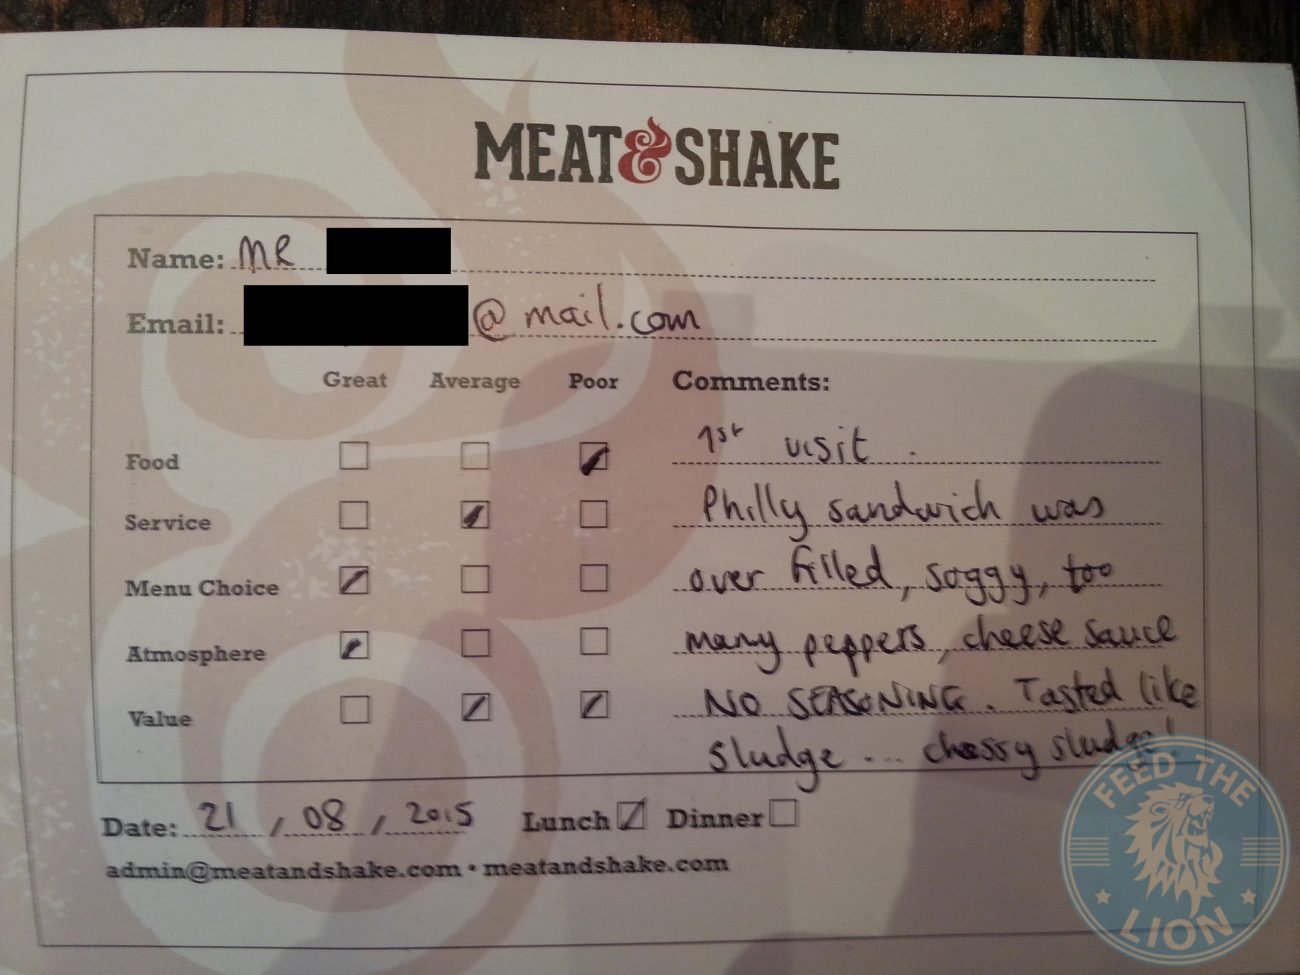 MEAT&SHAKE
Name: MR
Email: @mail.com
Great Average Poor Comments:
Food
Service
Menu Choice
Atmosphere
Value
1st visit.
Philly sandwich was
over filled, soggy, too
many peppers, cheese sauce
NO SEASONING. Tasted like
sludge ... chessy sludge!
Date: 21 / 08 / 2015 Lunch Dinner
admin@meatandshake.com • meatandshake.com
FEED THE
LION